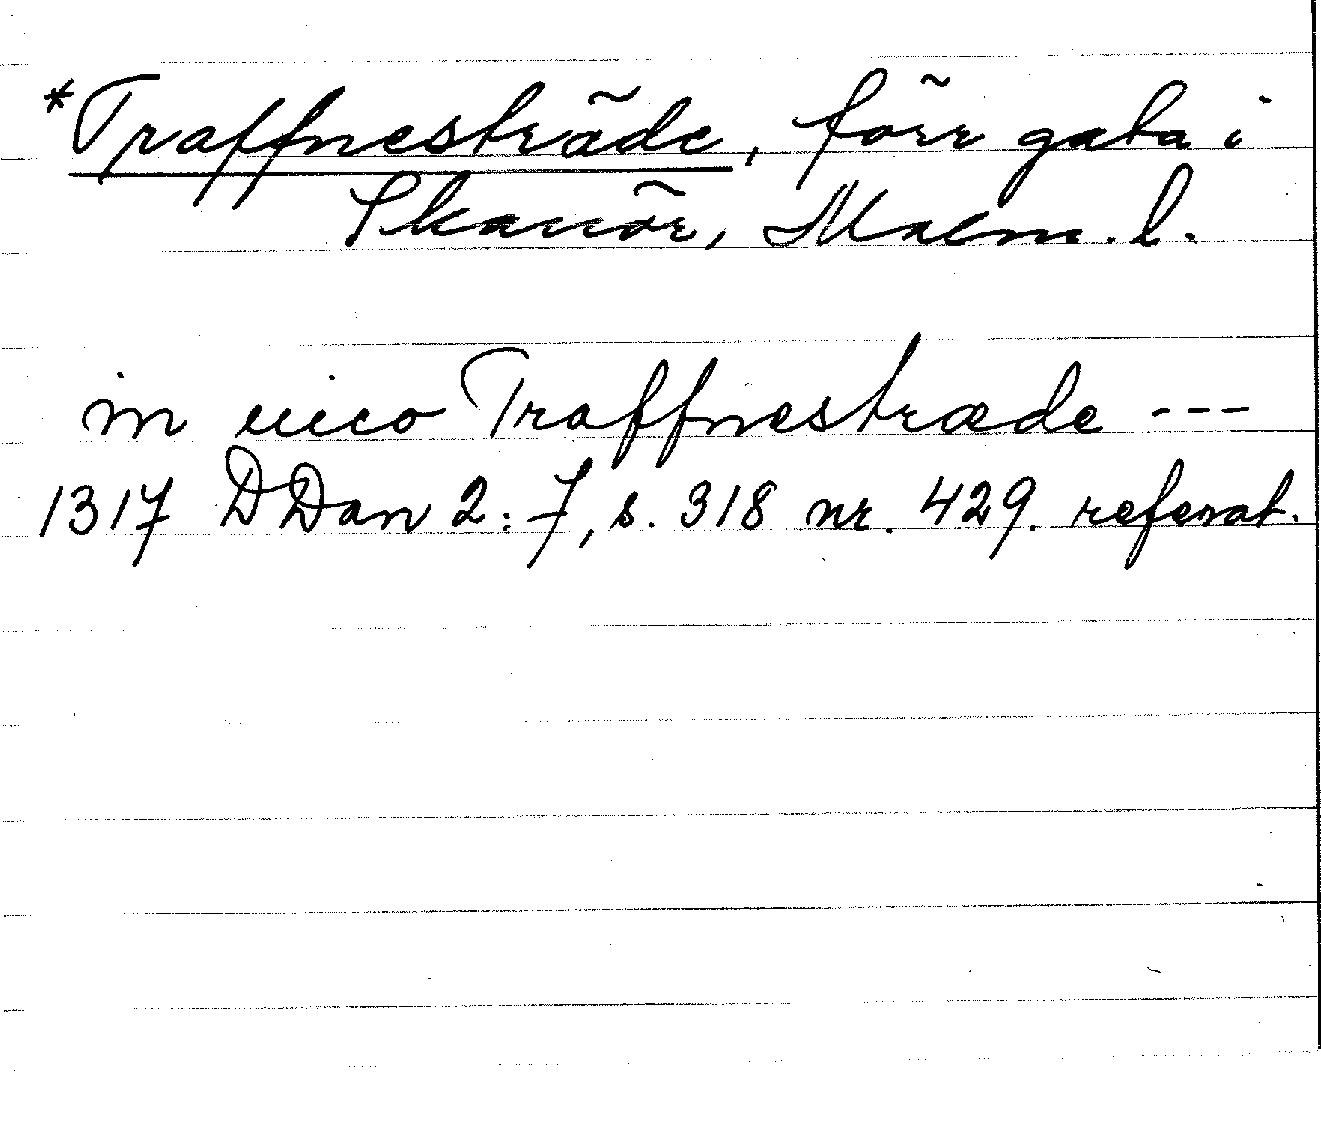 *Traffnesträde, förr gata i
Skanör, Malm. l.
in uico Traffnestræde ---
1317 DDan 2:7, s. 318 nr. 429. referat.